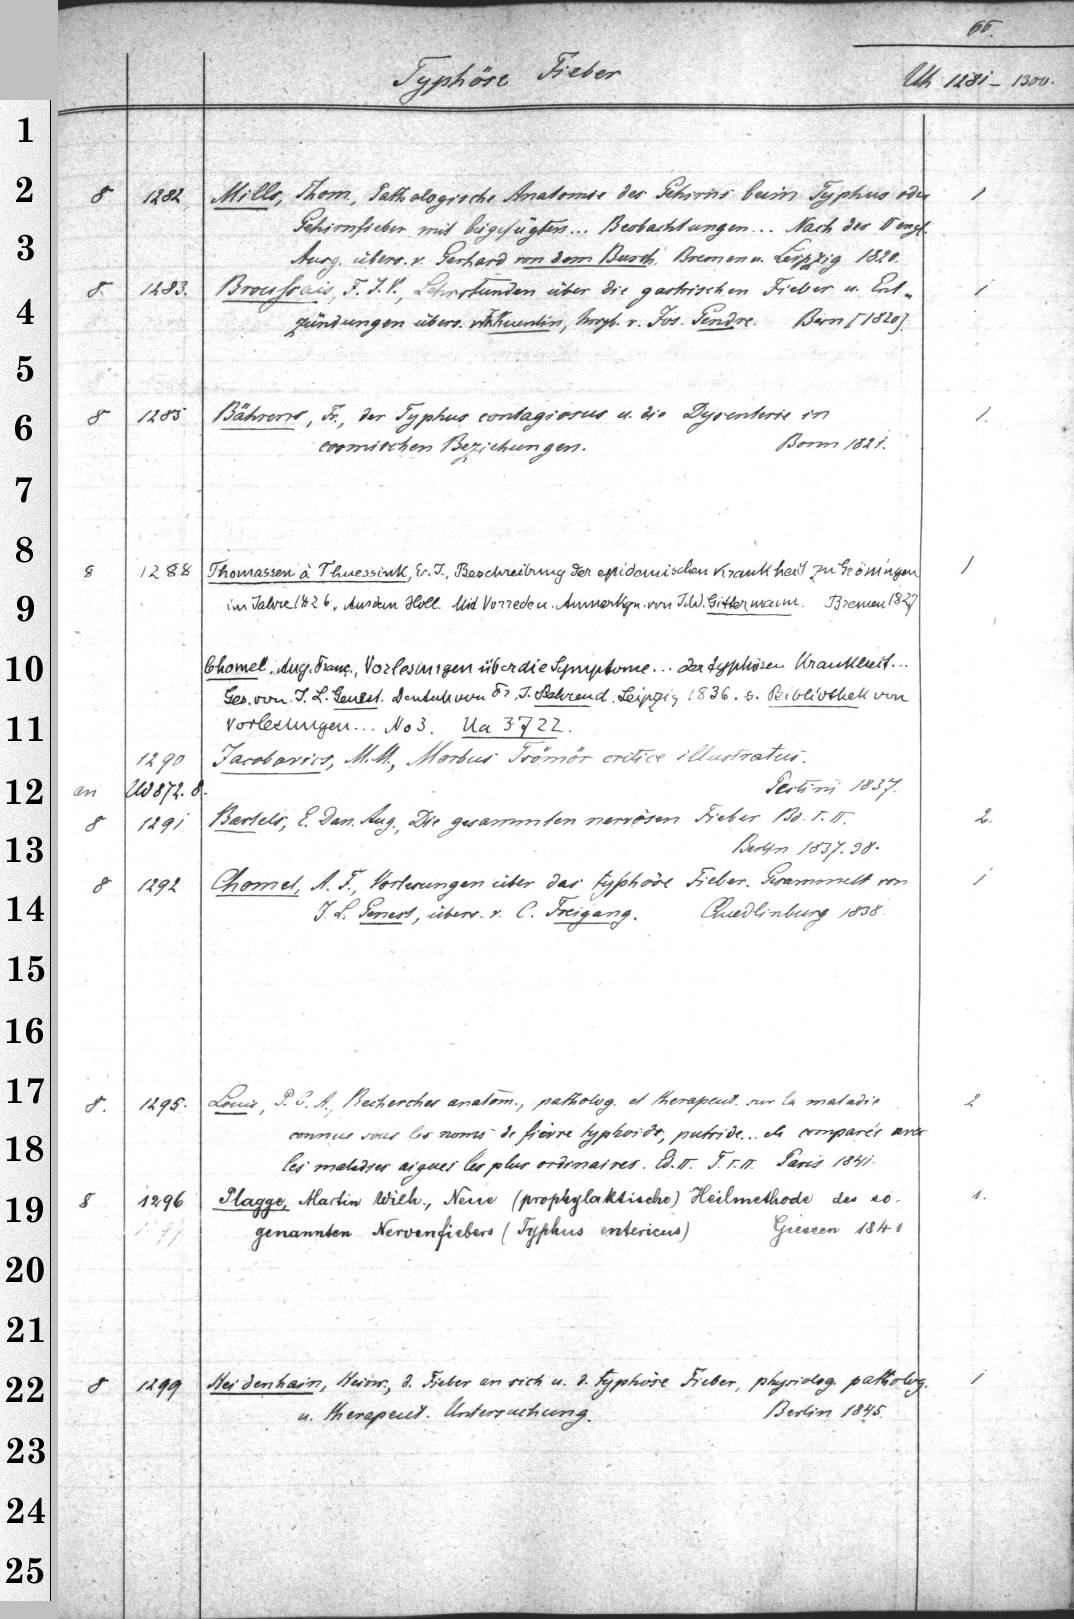 66.
Typhöse Fieber
Uh 1281 - 1300.
1
2
8 1282 Mills, Thom., Pathologische Anatomie des Gehirns beim Typhus oder 1
Gehirnfieber mit beigefügten... Beobachtungen... Nach der II engl.
3
Ausg. übers. v. Gerhard von dem Busch. Bremen u. Leipzig 1820.
8. 1283. Broussais, F. J. V., Lehrstunden über die gastrischen Fieber u. Ent- 1
4
zündungen übers. hrsg. v. Jos. Bern [1820]
5
8 1285 Bährens, Fr., der Typhus contagiosus u. die Dysenterie in 1.
6
cosmischen Beziehungen. Bonn 1821.
7
8
8 1288 Thomassen à Thuessink, Ev. J., Beschreibung der epidemischen Krankheit zu Gröningen 1
9
im Jahre 1826. Aus dem Holl. Mit Vorrede u. Anmerkgn. von J. W. Gittermann. Bremen 1827
10
Chomel, Aug. Franç., Vorlesungen über die Symptome... der typhösen Krankheit...
Ges. von J. L. Genest. Deutsch von Fr. J. Behrend. Leipzig 1836. s. Bibliothek von
11
Vorlesungen... No 3. Ua 3722.
1290 Jacobovics, M. M., Morbus Tsömör critice illustratus.
12
an Ud 872. 8. Pestini 1837.
8 1291 Bartels, E. Dan. Aug., Die gesammten nervösen Fieber Bd. I. II. 2.
13
Berlin 1837. 38.
8 1292 Chomel, A. F., Vorlesungen über das typhöse Fieber. Gesammelt von 1
14
J. L. Genest, übers. v. C. Freigang. Quedlinburg 1838.
15
16
17
8. 1295. Louis, P. C. A., Recherches anatom., patholog. et therapeut. sur la maladie 2
connue sous les noms de fièvre typhoide, putride... etc comparée avec
18
les maladies aigues les plus ordinaires. Ed. II. T. I. II. Paris 1841.
19
8 1296 Plagge, Martin Wilh., Neue (prophylaktische) Heilmethode des so- 1.
genannten Nervenfiebers (Typhus entericus) Giessen 1841
20
21
22
8 1299 Heidenhain, Heinr., d. Fieber an sich u. d. typhöse Fieber, physiolog. patholog. 1
u. therapeut. Untersuchung. Berlin 1845.
23
24
25